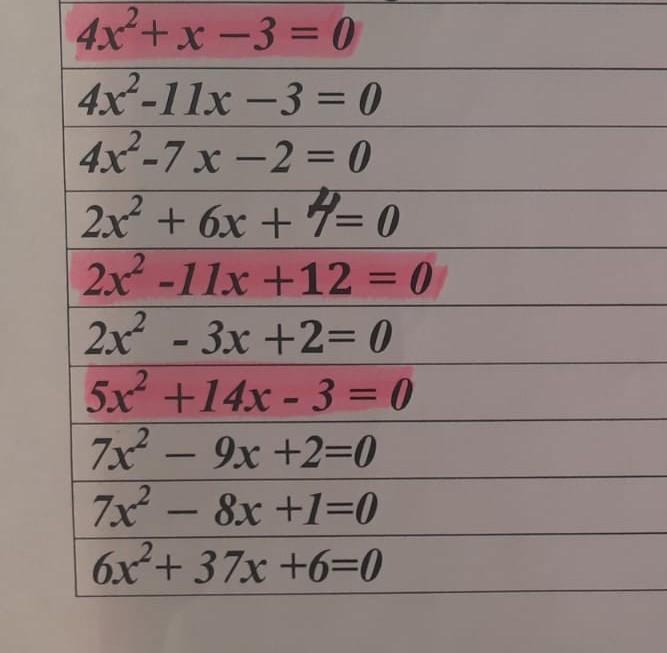 4x²+ x −3 = 0
4x²-11x −3 = 0
4x²-7 x −2 = 0
2x² + 6x + 4= 0
2x² -11x +12 = 0
2x² - 3x +2= 0
5x² +14x - 3 = 0
7x² − 9x +2=0
7x² − 8x +1=0
6x²+ 37x +6=0